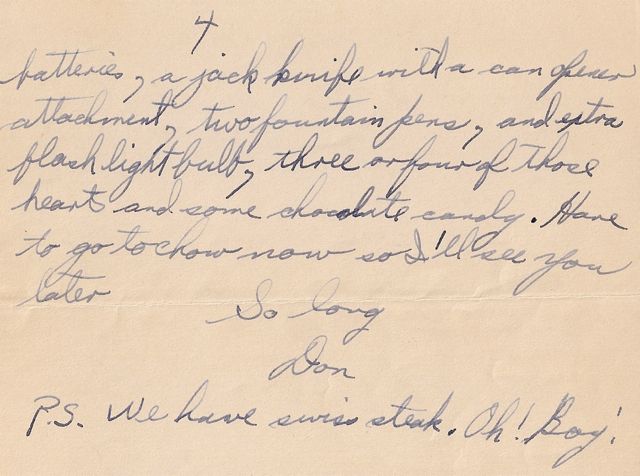 4
batteries, a jack knife with a can opener
attachment, two fountain pens, and extra
flash light bulb, three or four of those
hearts and some chocolate candy. Have
to go to chow now so I'll see you
later
So long
Don
P.S. We have swiss steak. Oh! Boy!